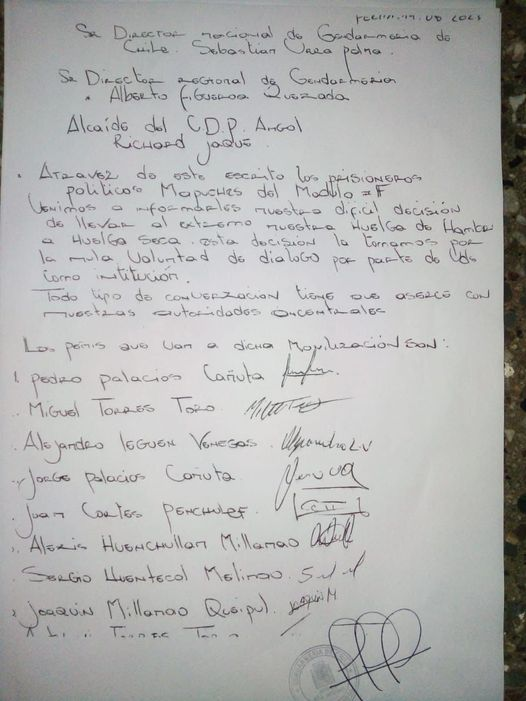 Fecha. 17. 08 2023
Sr Director nacional de Gendarmeria de
Chile. Sebastian Urra palma.
Sr Director regional de Gendarmeria
Alberto Figueroa Quezada
Alcaide del C.D.P. Angol
Richard Jaque.
Atravez de este escrito los prisioneros
politicos Mapuches del Modulo #F
Venimos a informarles nuestra dificil decisión
de llevar al extremo nuestra Huelga de Hambre
a Huelga Seca. esta decisión la tomamos por
la mula voluntad de dialogo por parte de Uds
como institución.
Todo tipo de converzacion tiene que aserce con
nuestras autoridades
Los peñis que van a dicha Movilización son:
1. pedro palacios Cañuta
Miguel Torres Toro.
Alejandro Leguen Venegas. Alejandro L.V
Jorge palacios Cañuta
Juan Cortes Penchulef
Alexis Huenchullan Millanao
Sergio Huentecol Melinao
Joaquin Millanao Queipul. Joaquin M